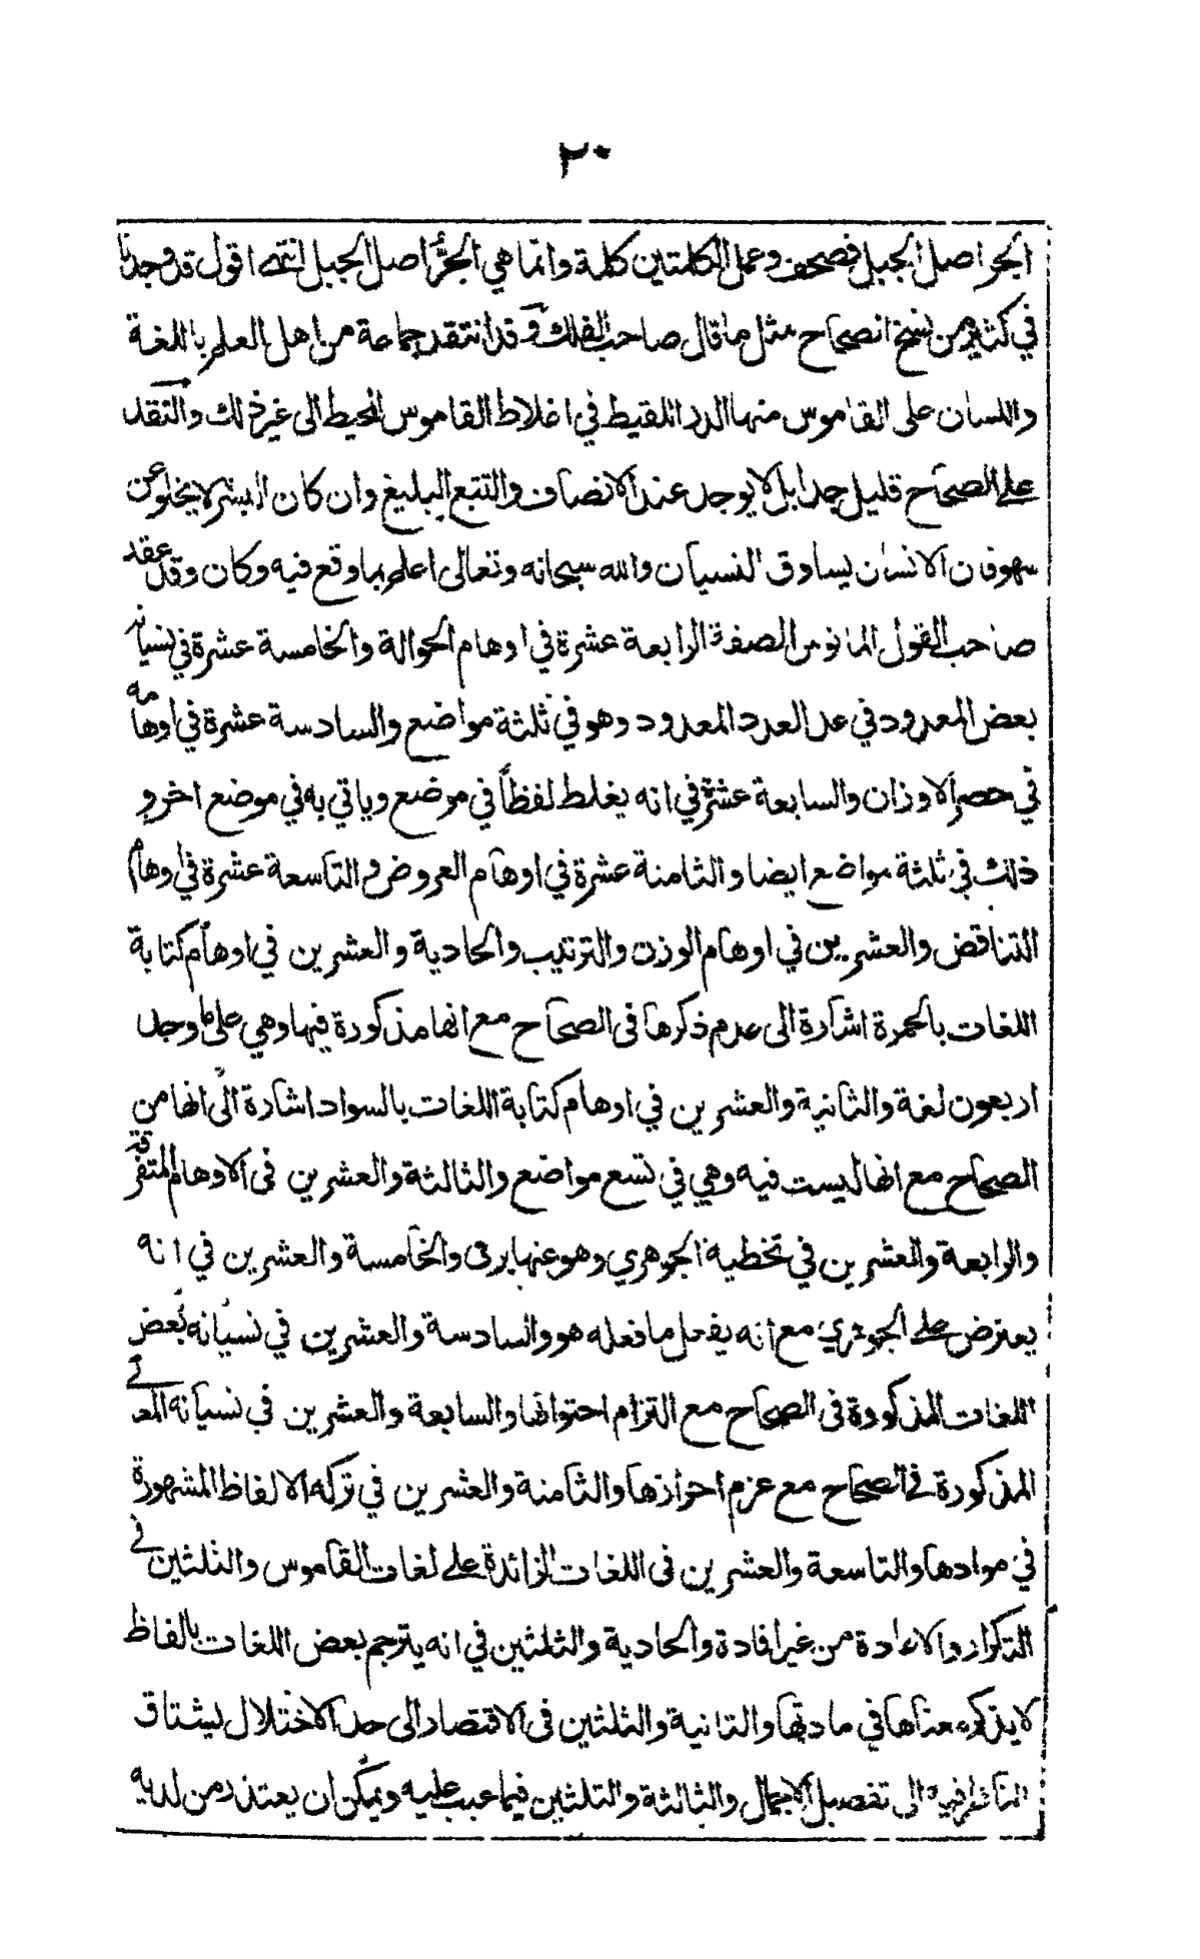 ٢٠
الجر اصل الجبل فصحف وعمل الكلمتين كلمة وانما هي الجرُّ اصل الجبل انتهى اقول قد وجدنا
في كثير من نسخ الصحاح مثل ما قال صاحب الفلك وقد انتقد جماعة من اهل العلم باللغة
واللسان على القاموس منها الدر اللقيط في اغلاط القاموس المحيط الى غير ذلك والنقد
على الصحاح قليل جدا بل لا يوجد عند الانصاف والتتبع البليغ وان كان البشر لا يخلو عن
سهو فان الانسان يساوق النسيان والله سبحانه وتعالى اعلم بما وقع فيه وكان وقد عقد
صاحب القول المانوس الصفة الرابعة عشرة في اوهام الحوالة والخامسة عشرة في نسيانه
بعض المعدود في عد العدد المعدود وهو في ثلثة مواضع والسادسة عشرة في اوهامه
في حصر الاوزان والسابعة عشرة في انه يغلط لفظاً في موضع وياتي به في موضع اخر و
ذلك في ثلثة مواضع ايضا والثامنة عشرة في اوهام العروض والتاسعة عشرة في اوهام
التناقض والعشرين في اوهام الوزن والترتيب والحادية والعشرين في اوهام كتابة
اللغات بالحمرة اشارة الى عدم ذكرها فى الصحاح مع انها مذكورة فيها وهي على ما وجد
اربعون لغة والثانية والعشرين في اوهام كتابة اللغات بالسواد اشارة الى انها من
الصحاح مع انها ليست فيه وهي في تسع مواضع والثالثة والعشرين فى الاوهام المتفرقة
والرابعة والعشرين في تخطية الجوهري وهو عنها برى والخامسة والعشرين في انه
يعترض على الجوهري مع انه يفعل ما فعله هو والسادسة والعشرين في نسيانه بعض
اللغات المذكورة فى الصحاح مع التزام احتوائها والسابعة والعشرين في نسيانه المعانى
المذكورة فى الصحاح مع عزم احرازها والثامنة والعشرين في تركه الالفاظ المشهورة
في موادها والتاسعة والعشرين فى اللغات الزائدة على لغات القاموس والثلثين فى
التكرار والاعادة من غير افادة والحادية والثلثين في انه يترجم بعض اللغات بالفاظ
لا يذكر معناها في مادتها والثانية والثلثين فى الاقتصار الى حد الاختلال ليشتاق
الناظر فيه الى تفصيل الاجمال والثالثة والثلثين فيما عيب عليه ويمكن ان يعتذر من لديه